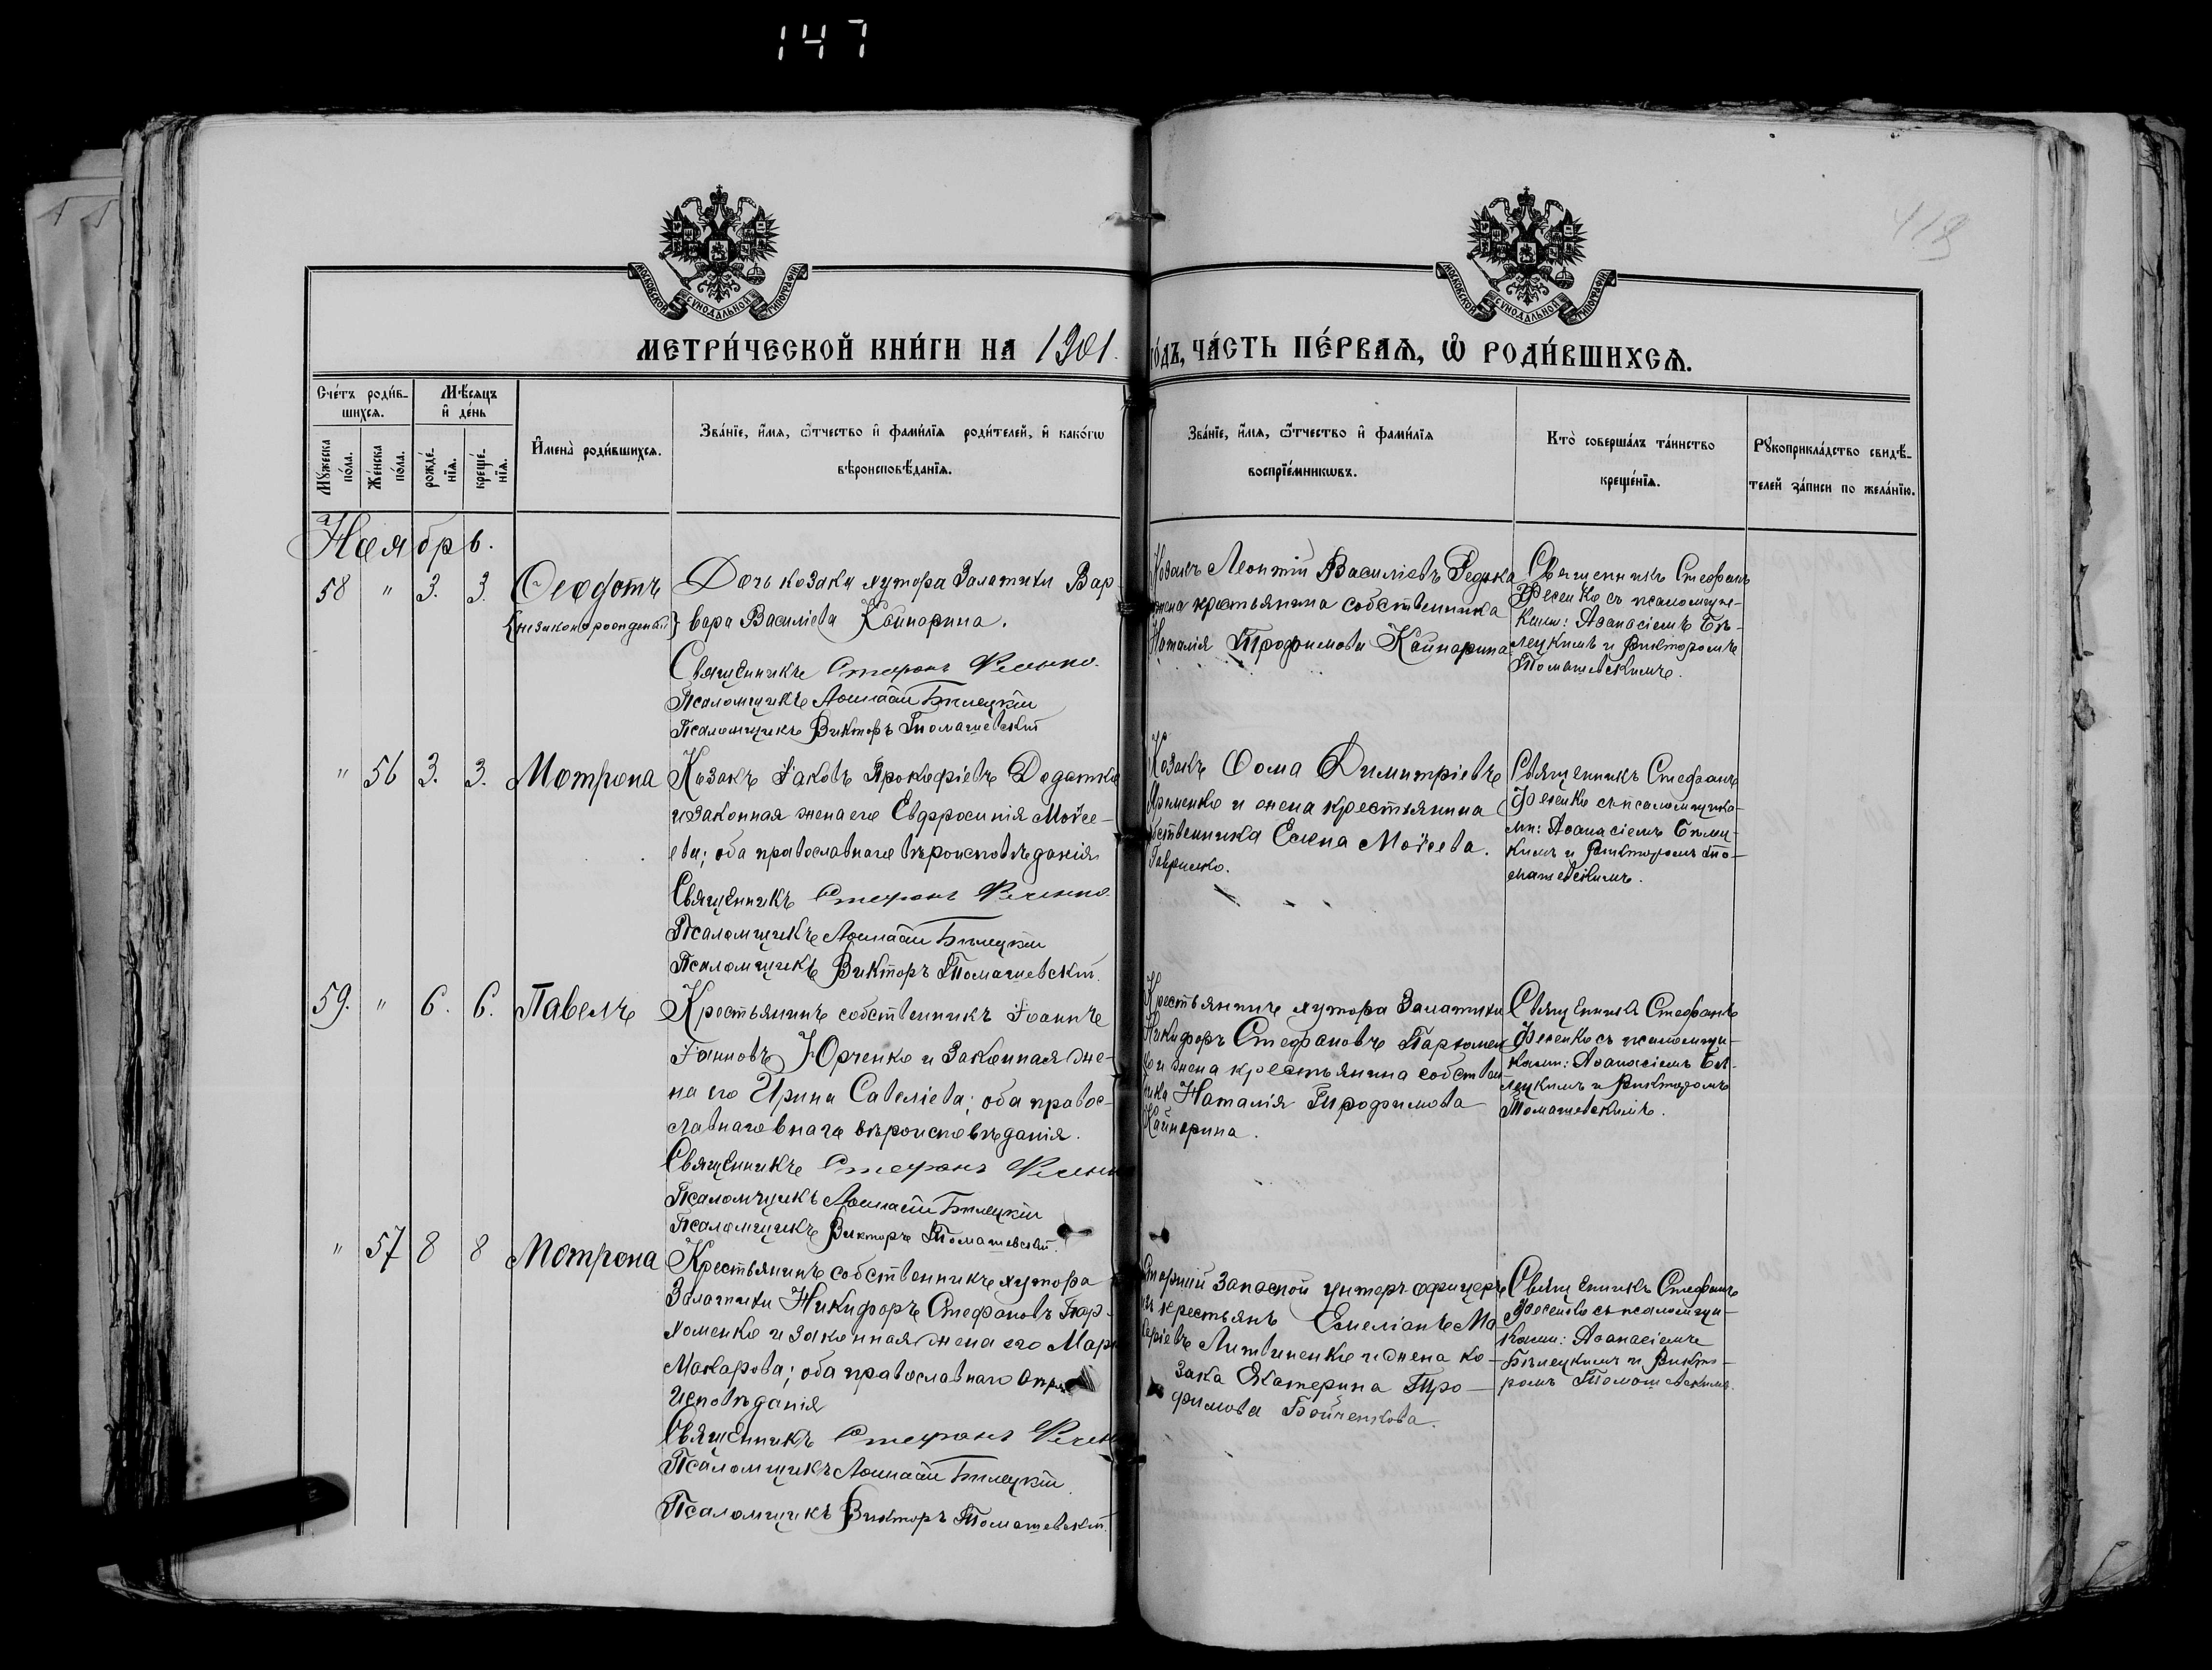 147
418
МОСКОВСКОЙ СѴНОДАЛЬНОЙ ТИПОГРАФІИ
МОСКОВСКОЙ СѴНОДАЛЬНОЙ ТИПОГРАФІИ
МЕТРИ́ЧЕСКОЙ КНИ́ГИ НА 1901.
го́дъ, ча́сть пе́рваѧ, ѡ҆ роди́вшихсѧ.
Сче́тъ роди́в-
шихсѧ.
Мѣ́сѧцъ
и҆ де́нь
Мꙋ́жеска
по́ла.
Же́нска
по́ла.
рожде́-
нїѧ.
креще́-
нїѧ.
И҆мена̀ роди́вшихсѧ.
Зва́нїе, и҆́мѧ, ѻ҆́тчество и҆ фами́лїѧ роди́телей, и҆ како́гѡ
вѣроисповѣ́данїѧ.
Зва́нїе, и҆́мѧ, ѻ҆́тчество и҆ фами́лїѧ
воспрїе́мникѡвъ.
Кто̀ соверша́лъ та́инство
креще́нїѧ.
Рꙋкоприкла́дство свидѣ́-
телей за́писи по жела́нїю.
Ноябрь.
58 " 3. 3. Ѳеодотъ
{незаконорожденый}
Дочь козака хутора Залатихи Вар-
вара Василіева Кайнарина.
Священникъ Стефанъ Фесенко.
Псаломщикъ Аѳанасій Бѣлецкій
Псаломщикъ Викторъ Томашевскій
Козакъ Леонтій Василіевъ Редька
жена крестьянина собственника
Наталія Трофимова Кайнарина
Священникъ Стефанъ
Фесенко съ псаломщи-
ками: Аѳанасіемъ Бѣ-
лецкимъ и Викторомъ
Томашевскимъ.
" 56 3. 3. Мотрона
Козакъ Іаковъ Прокофіевъ Додатко
и законная жена его Евфросинія Моѵсе-
ева; оба православнаго вѣроисповѣданія
Священникъ Стефанъ Фесенко.
Псаломщикъ Аѳанасій Бѣлецкій
Псаломщикъ Викторъ Томашевскій.
Козакъ Ѳома Димитріевъ
Яременко и жена крестьянина
собственника Елена Моѵсеева.
Гавриленко.
Священникъ Стефанъ
Фесенко съ псаломщика-
ми: Аѳанасіемъ Бѣлец-
кимъ и Викторомъ То-
машевскимъ.
59. " 6. 6. Павелъ
Крестьянинъ собственникъ Іоаннъ
Іоанновъ Юрченко и законная же-
на его Ирина Савеліева; оба правос-
лавнаго внаго вѣроисповѣданія.
Священникъ Стефанъ Фесенко
Псаломщикъ Аѳанасій Бѣлецкій
Псаломщикъ Викторъ Томашевскій.
Крестьянинъ хутора Залатихи
Никифоръ Стефановъ Пархомен-
ко и жена крестьянина собствен-
ника Наталія Трофимова
Кайнарина.
Священникъ Стефанъ
Фесенко съ псаломщи-
ками: Аѳанасіемъ Бѣ-
лецкимъ и Викторомъ
Томашевскимъ.
" 57 8 8 Мотрона
Крестьянинъ собственникъ хутора
Залатихи Никифоръ Стефановъ Пар-
хоменко и законная жена его Марія
Макарова; оба православнаго
исповѣданія
Священникъ Стефанъ Фесенко
Псаломщикъ Аѳанасій Бѣлецкій.
Псаломщикъ Викторъ Томашевскій.
Старшій запасной унтеръ-офицеръ
изъ крестьянъ Емеліанъ Ма-
каріевъ Литвиненко и жена ко-
зака Екатерина Тро-
фимова Бойченкова.
Священникъ Стефанъ
Фесенко съ псаломщи-
ками: Аѳанасіемъ
Бѣлецкимъ и Викто-
ромъ Томашевскимъ.